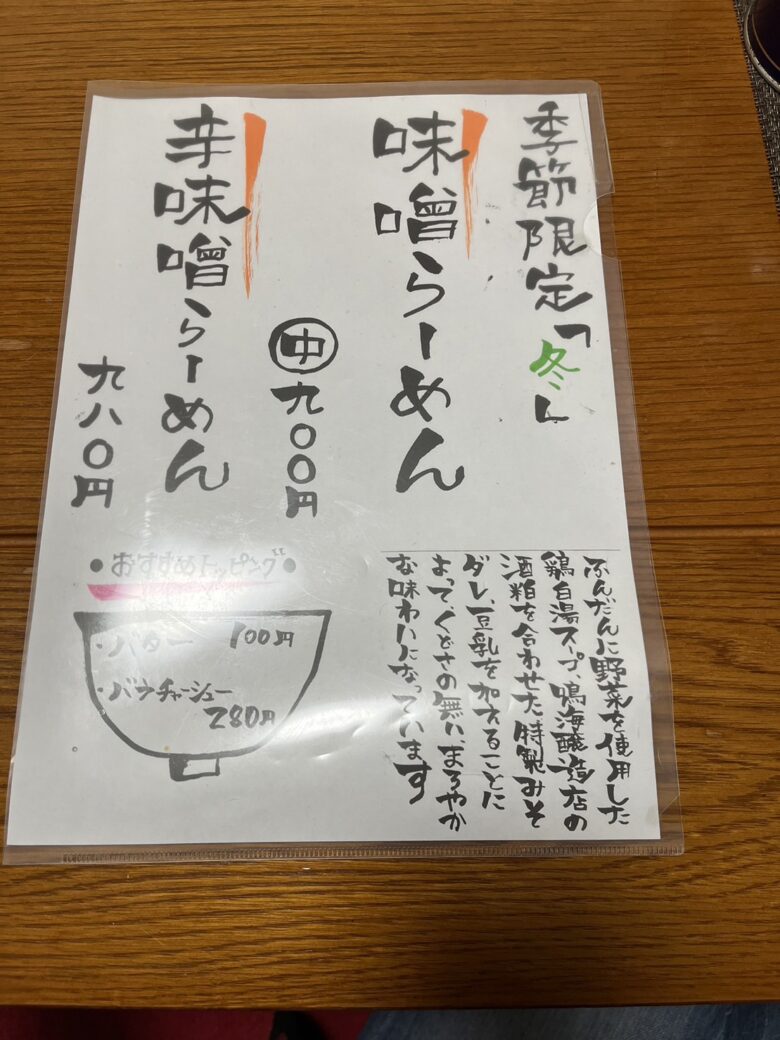 季節限定「冬」
味噌らーめん
㊥九〇〇円
辛味噌らーめん
九八〇円
ふんだんに野菜を使用した
鶏白湯スープ、鳴海醸造店の
酒粕を合わせた特製みそ
ダレ、豆乳を加えることに
よって、くどさの無い、まろやか
な味わいになっています
●おすすめトッピング●
・バター 100円
・バラチャーシュー
280円